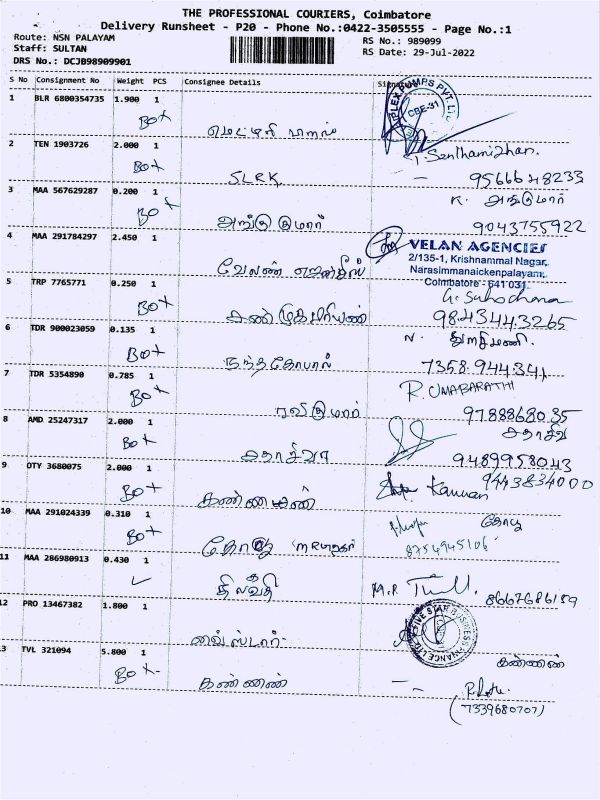 THE PROFESSIONAL COURIERS, Coimbatore
Delivery Runsheet - P20 - Phone No.:0422-3505555 - Page No.:1
Route: NSN PALAYAM
Staff: SULTAN
DRS No.: DCJB98909901
RS No.: 989099
RS Date: 29-Jul-2022
S No Consignment No Weight PCS Consignee Details
1 BLR 6800354735 1.900 1
BOX
CBE-31
2 TEN 1903726 2.000 1
T. Senthamizhan.
BOX
SLRK
9566648233
3 MAA 567629287 0.200 1
BOX
9043755922
4 MAA 291784297 2.450 1
VELAN AGENCIES
2/135-1, Krishnammal Nagar,
Narasimmanaickenpalayam,
Coimbatore - 641 031.
5 TRP 7765771 0.250 1
BOX
சண்முகபிரியன்
9843443265
6 TDR 900023059 0.135 1
BOX
நந்தகோபால்
7358944341
7 TDR 5354890 0.785 1
R UMABARATHI
BOX
ரவிகுமார்
9788868035
8 AMD 25247317 2.000 1
BOX
சதாசிவா
சதாசிவ
9489958043
9 OTY 3680075 2.000 1
BOX
Kannan
9443834000
10 MAA 291024339 0.310 1
BOX
8754945106
11 MAA 286980913 0.430 1
✓
திலவதி
8667686189
12 PRO 13467382 1.800 1
கண்ணன்
13 TVL 321094 5.800 1
BOX
கண்ணன்
(7339680707)